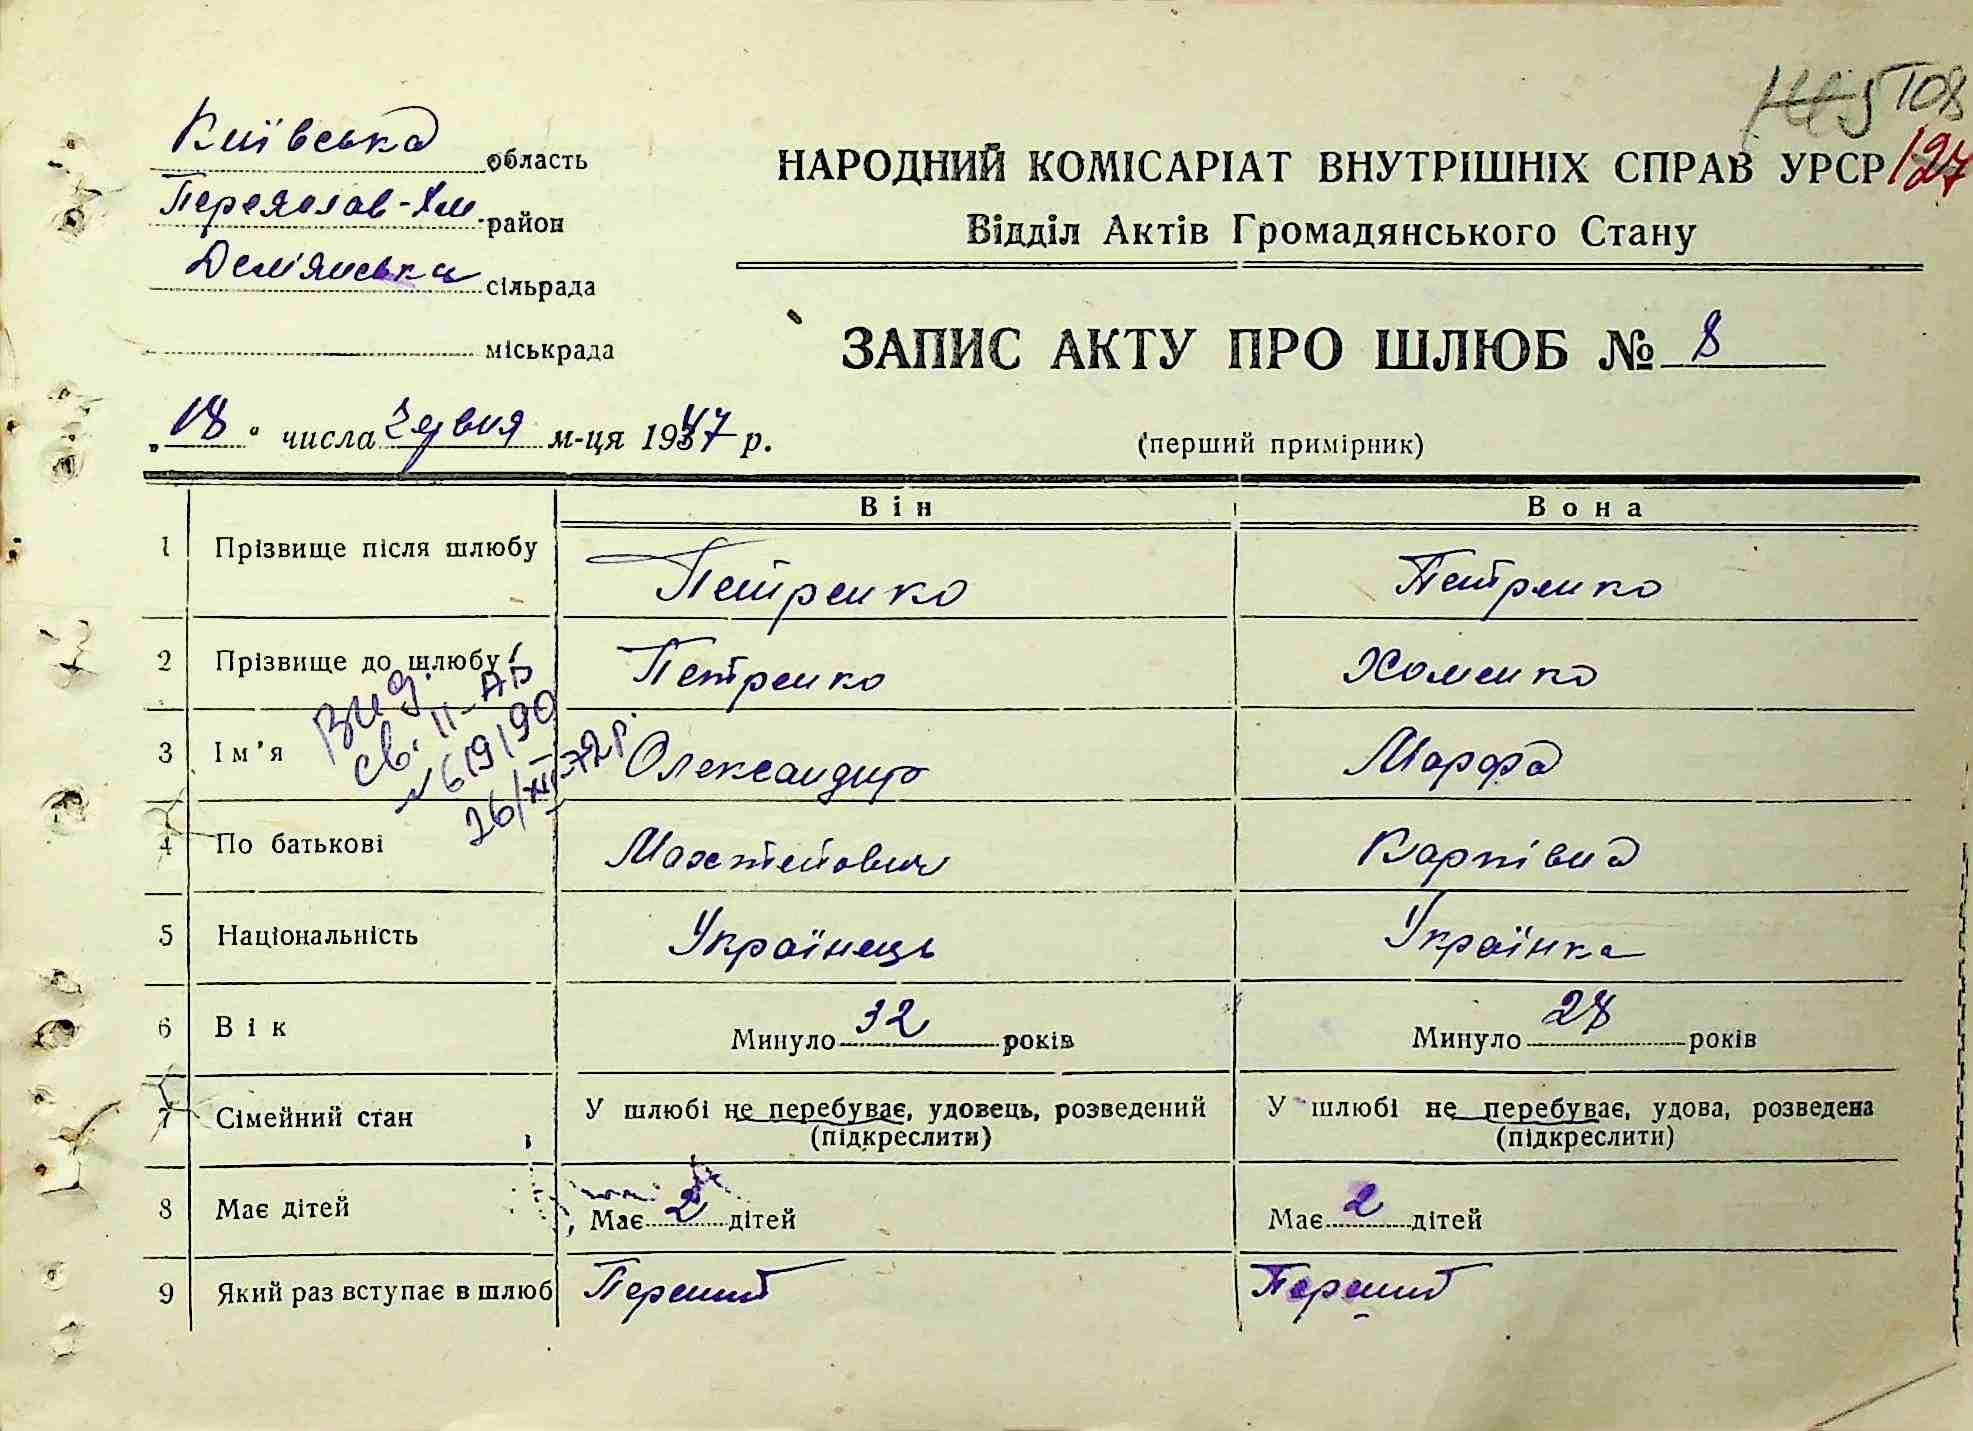 108
127
Київська область
Переяслав-Хм. район
Дем'янська сільрада
міськрада
НАРОДНИЙ КОМІСАРІАТ ВНУТРІШНІХ СПРАВ УРСР
Відділ Актів Громадянського Стану
ЗАПИС АКТУ ПРО ШЛЮБ № 8
„18“ числа червня м-ця 1947 р.
(перший примірник)
Він Вона
1 Прізвище після шлюбу Петренко Петренко
2 Прізвище до шлюбу Петренко Хоменко
Вид.
св. II-АР
№ 619190
26/XII-72 р.
3 Ім'я Олександр Марфа
4 По батькові Карпівна
5 Національність Українець Українка
6 Вік Минуло 32 років Минуло 28 років
7 Сімейний стан У шлюбі не перебуває, удовець, розведений У шлюбі не перебуває, удова, розведена
(підкреслити) (підкреслити)
8 Має дітей Має 2 дітей Має 2 дітей
9 Який раз вступає в шлюб Перший Перший